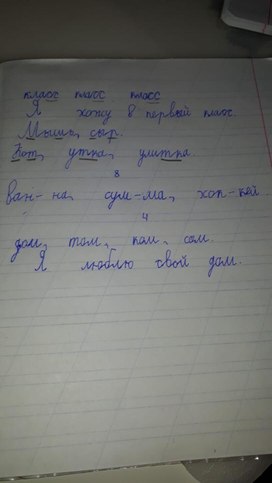 класс класс класс
Я хожу в первый класс.
Мышь, сыр.
Кот, утка, улитка.
8
ван-на, сум-ма, хок-кей
4
дом, том, ком, сом.
Я люблю свой дом.